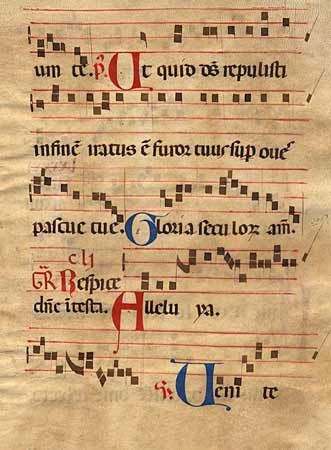 um te. p. Ut quid ds repulisti
infine iratus e furor tuus sup oues
pascue tue. Gloria seculorz am.
clj
Gr. Respice
dne i testa. Alleluya.
S. Veni te